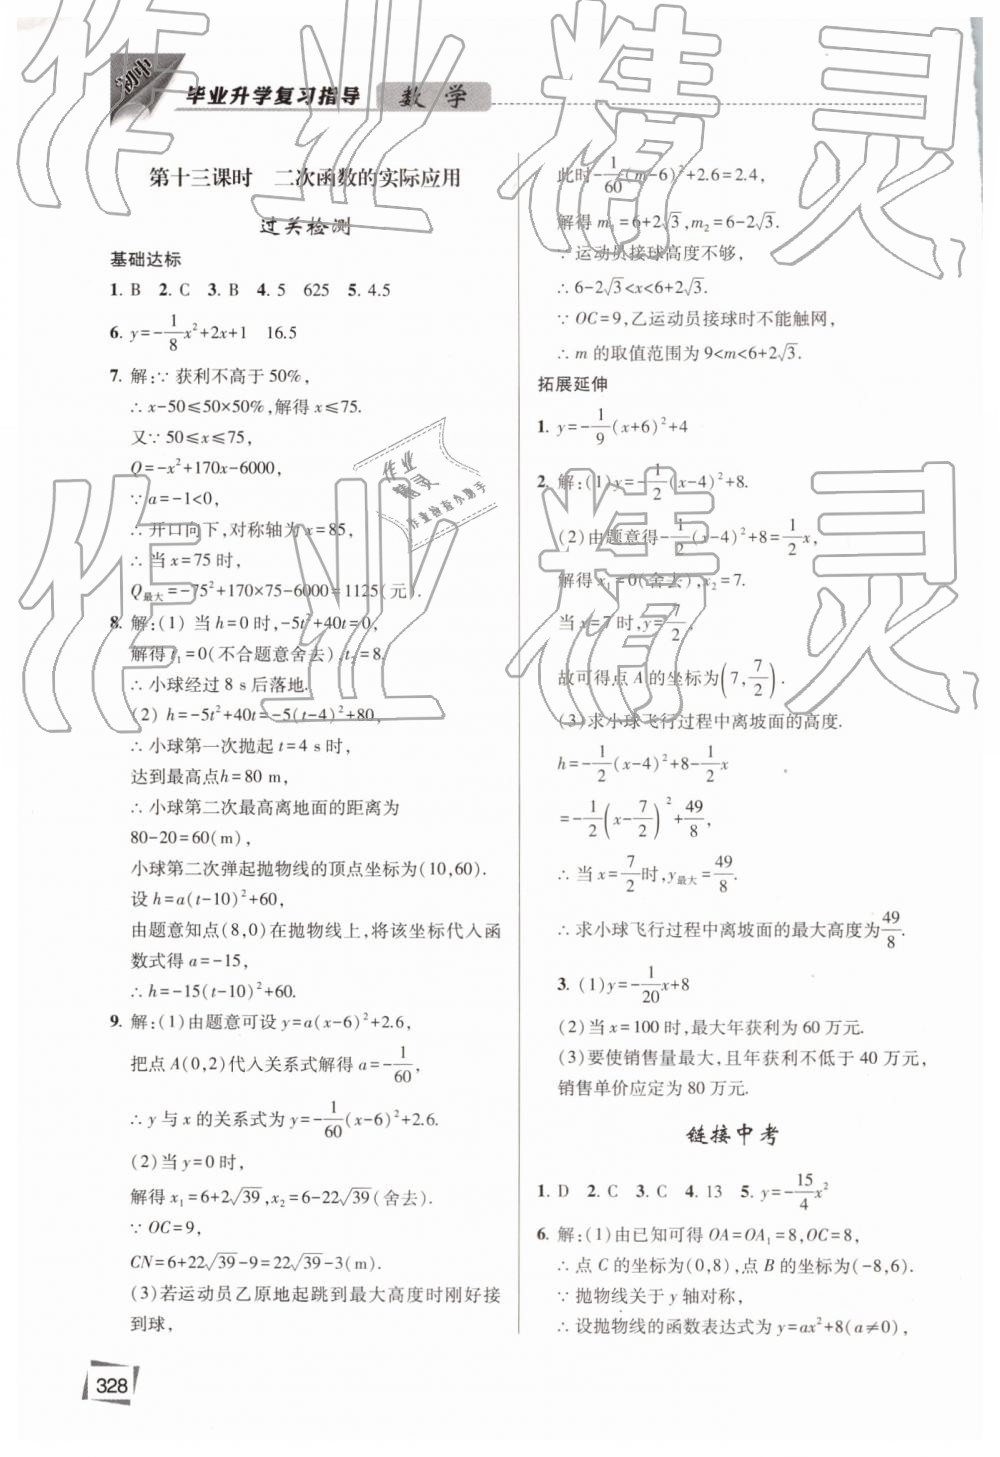 初中
毕业升学复习指导 数学
第十三课时 二次函数的实际应用
过关检测
基础达标
1. B 2. C 3. B 4. 5 625 5. 4.5
6. y=-1/8x²+2x+1 16.5
7. 解:∵获利不高于50%,
∴x-50≤50×50%,解得x≤75.
又∵50≤x≤75,
Q=-x²+170x-6000,
∵a=-1<0,
∴开口向下,对称轴为x=85,
∴当x=75时,
Q最大=-75²+170×75-6000=1125(元).
8. 解:(1) 当h=0时,-5t²+40t=0,
解得t₁=0(不合题意舍去),t₂=8.
∴小球经过8 s后落地.
(2) h=-5t²+40t=-5(t-4)²+80,
∴小球第一次抛起t=4 s时,
达到最高点h=80 m,
∴小球第二次最高离地面的距离为
80-20=60(m),
小球第二次弹起抛物线的顶点坐标为(10,60).
设h=a(t-10)²+60,
由题意知点(8,0)在抛物线上,将该坐标代入函
数式得a=-15,
∴h=-15(t-10)²+60.
9. 解:(1)由题意可设y=a(x-6)²+2.6,
把点A(0,2)代入关系式解得a=-1/60,
∴y与x的关系式为y=-1/60(x-6)²+2.6.
(2)当y=0时,
解得x₁=6+2√39,x₂=6-22√39(舍去).
∵OC=9,
CN=6+22√39-9=22√39-3(m).
(3)若运动员乙原地起跳到最大高度时刚好接
到球,
此时-1/60(m-6)²+2.6=2.4,
解得m₁=6+2√3,m₂=6-2√3.
∵运动员接球高度不够,
∴6-2√3<x<6+2√3.
∵OC=9,乙运动员接球时不能触网,
∴m的取值范围为9<m<6+2√3.
拓展延伸
1. y=-1/9(x+6)²+4
2. 解:(1)y=-1/2(x-4)²+8.
(2)由题意得-1/2(x-4)²+8=1/2x,
解得x₁=0(舍去),x₂=7.
当x=7时,y=7/2.
故可得点A的坐标为(7,7/2).
(3)求小球飞行过程中离坡面的高度.
h=-1/2(x-4)²+8-1/2x
=-1/2(x-7/2)²+49/8,
∴当x=7/2时,y最大=49/8.
∴求小球飞行过程中离坡面的最大高度为49/8.
3. (1)y=-1/20x+8
(2)当x=100时,最大年获利为60万元.
(3)要使销售量最大,且年获利不低于40万元,
销售单价应定为80万元.
链接中考
1. D 2. C 3. C 4. 13 5. y=-15/4x²
6. 解:(1)由已知可得OA=OA₁=8,OC=8,
∴点C的坐标为(0,8),点B的坐标为(-8,6).
∵抛物线关于y轴对称,
∴设抛物线的函数表达式为y=ax²+8(a≠0),
328
作业精灵
作业精灵
作业
精灵
作业检查小助手